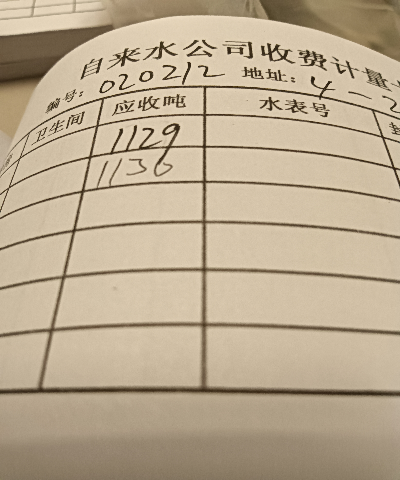 自来水公司收费计量
编号: 020212 地址: 4-2
卫生间 应收吨 水表号
1129
1136